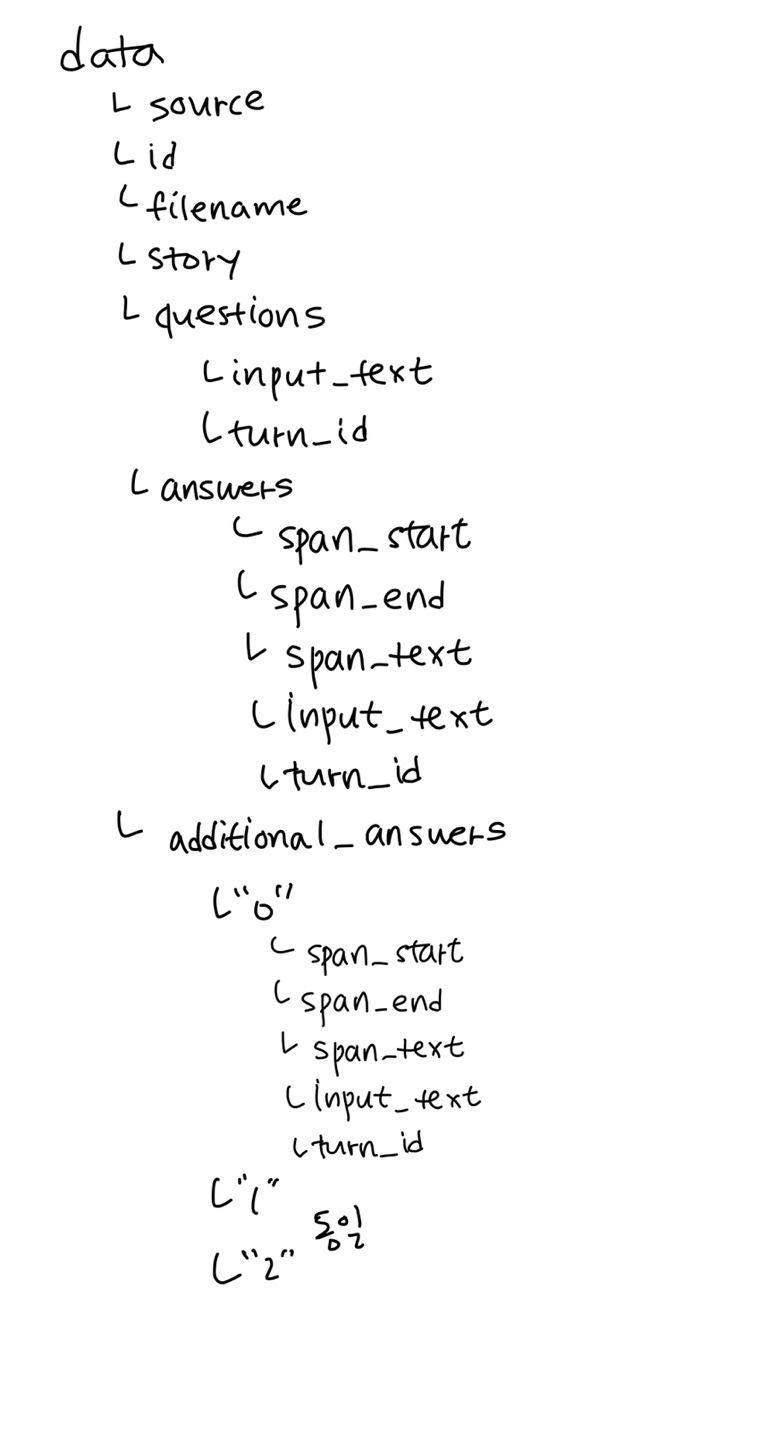 data
└ source
└ id
└ filename
└ story
└ questions
└ input_text
└ turn_id
└ answers
└ span_start
└ span_end
└ span_text
└ input_text
└ turn_id
└ additional_answers
└ "0"
└ span_start
└ span_end
└ span_text
└ input_text
└ turn_id
└ "1"
동일
└ "2"